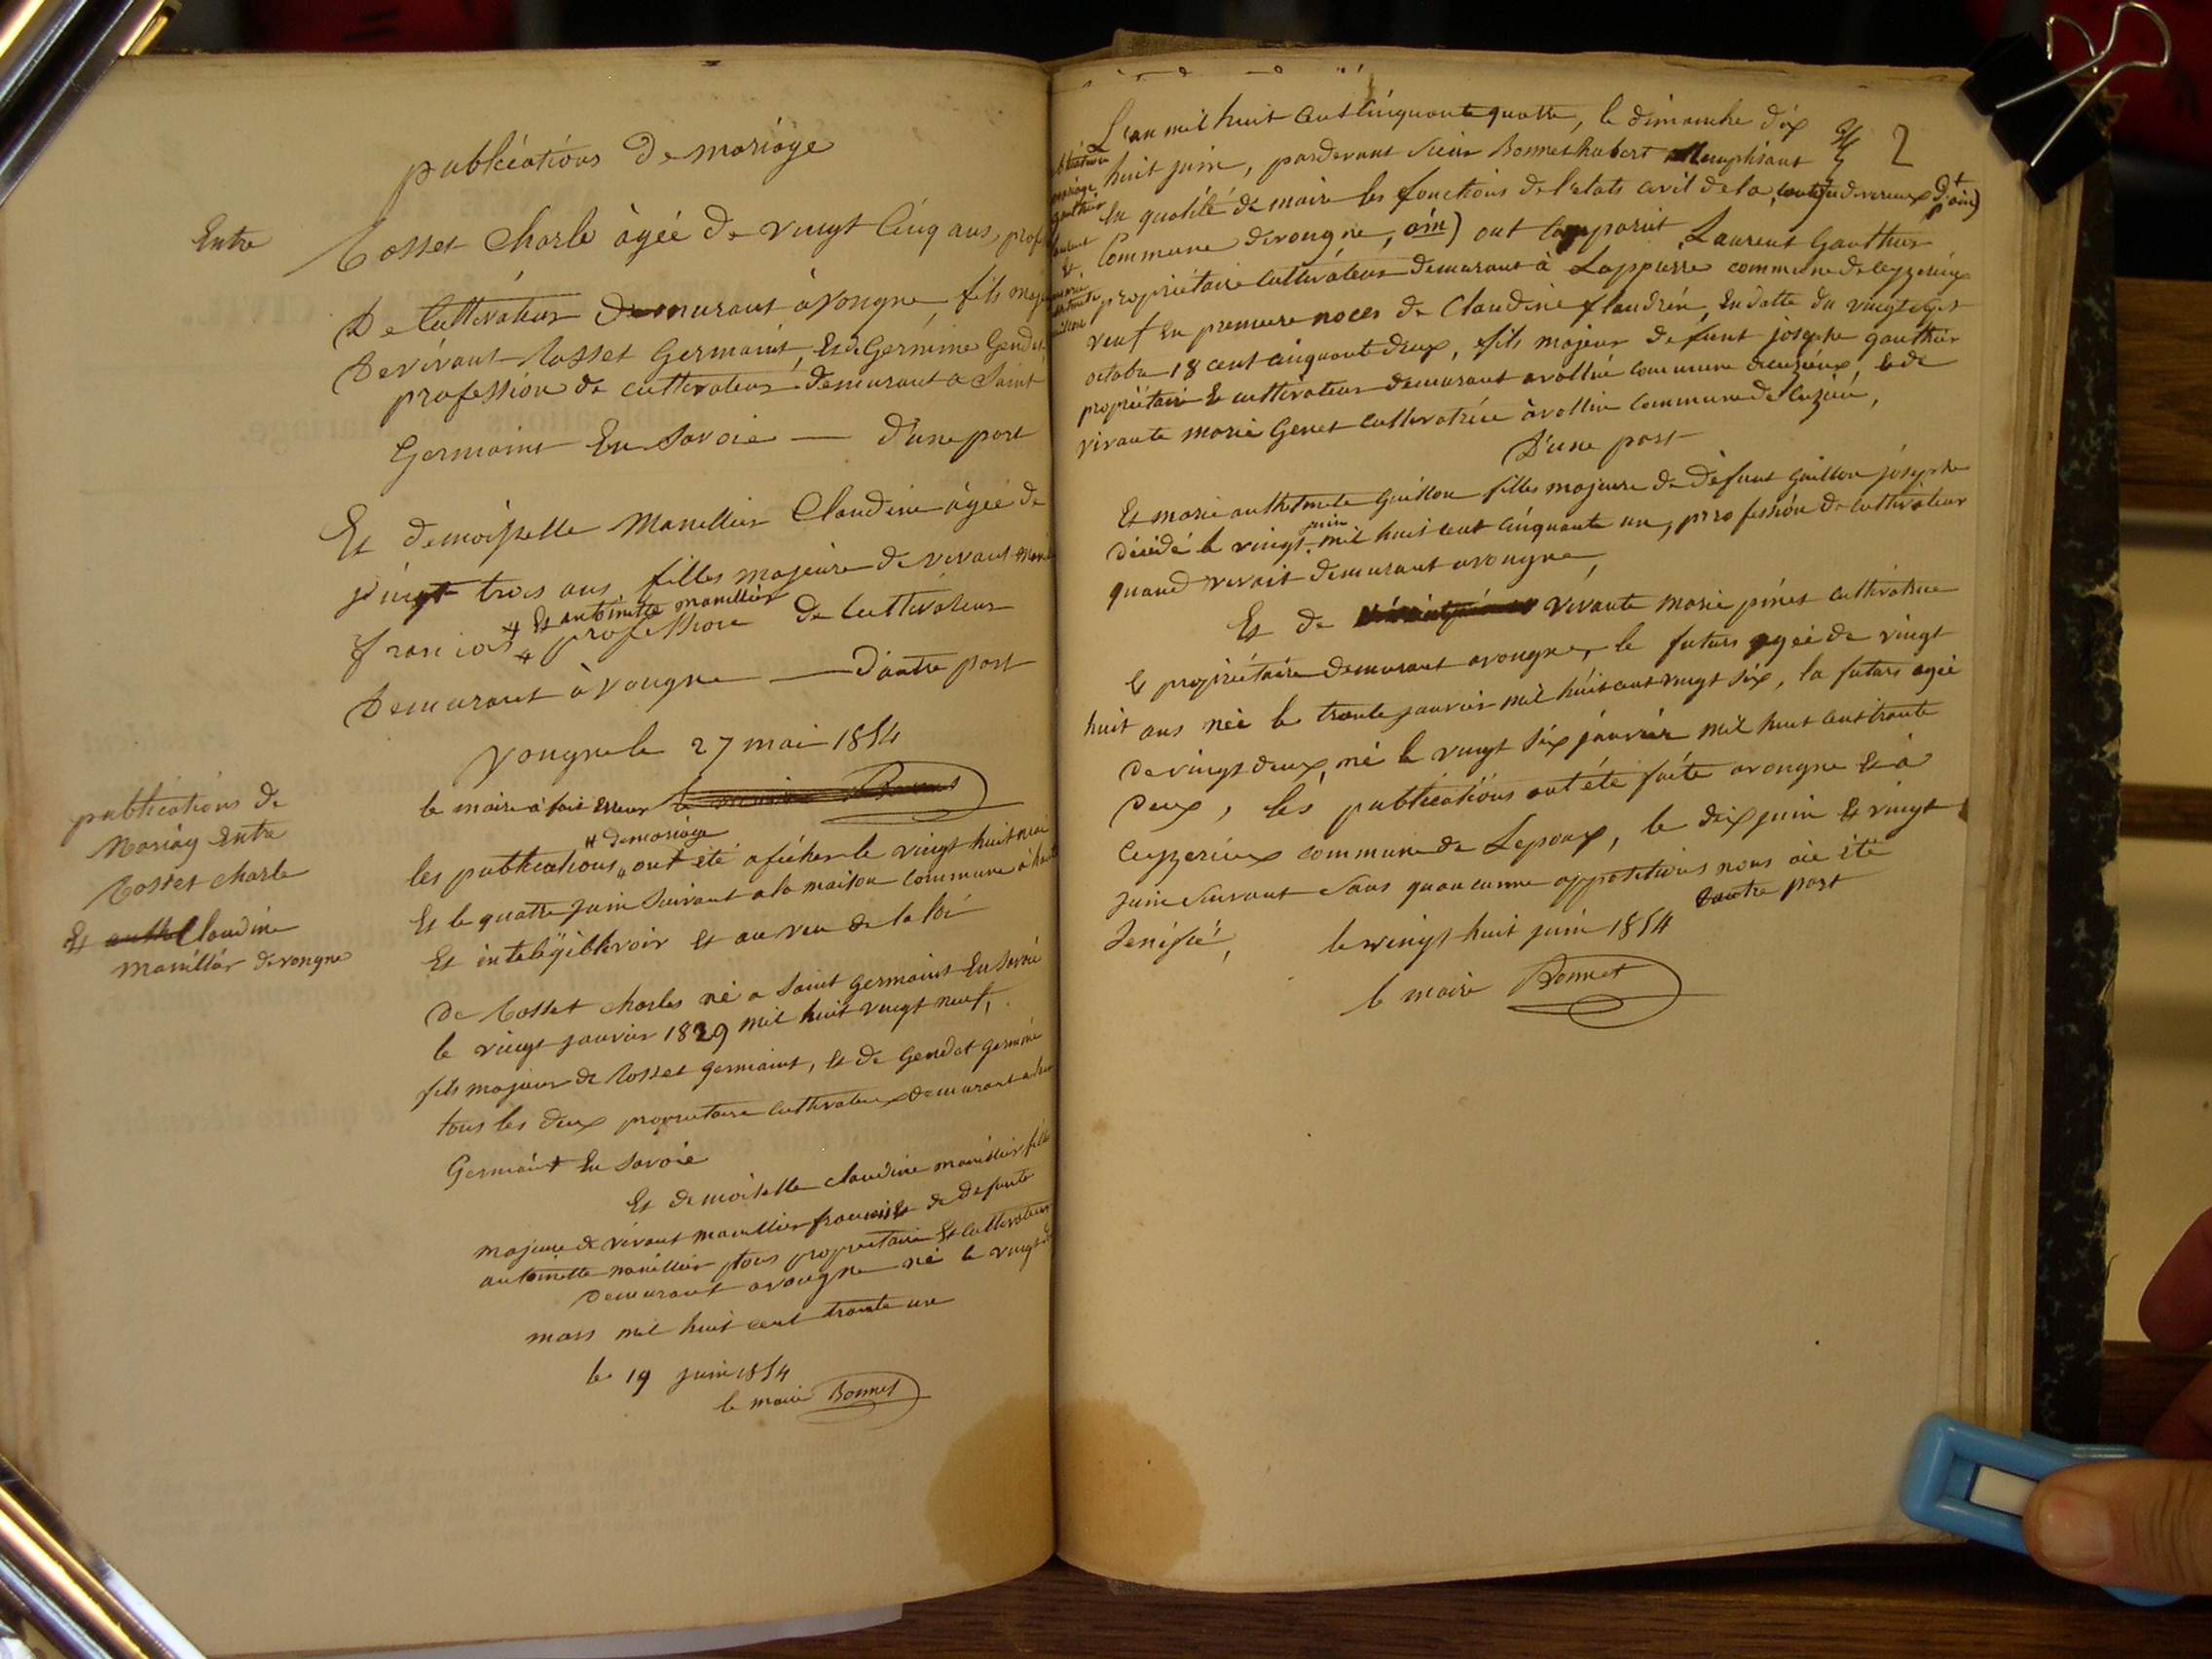 publications de mariage
Entre
Cosset Charle àgée de vingt Cinq ans, prof
De Cultivateur demurant àvongne, fils maje
De vivant Cosset Germaint, et de Germine Gendet
profession de cultivateur demurant a Saint
Germaint En Savoie — D'une part
Et demoiselle Manillier Claudine àgée de
vingt trois ans, filles majeure de vivant Mani
+ Et antoinette manillier
francois + profession de Cultivateur
Demurant à vongne — D'autre part
vongne le 27 mai 1854
le maire à fait Erreur le maire Bonnet
publications de
Mariag Entre
Cosset charle
Et Claudine
manillier de vongne
# de mariage
les publications # ont été afficher le vingt huit mai
Et le quatre juin suivant a la maison commune à haute
Et inteligible voix Et au veu de la loi
De Cosset Charles né a Saint germaint En Savoie
le vingt janvier 1829 mil huit vingt neuf,
fils majeur de Cosset germaint, et de Gendet germine
tous les deux proprietaire cultivateur demurant a
Germaint En Savoie
Et demoiselle claudine manillier fille
majeure de vivant manillier francois Et de defunte
antoinette manillier tous proprietaire Et cultivateur
demurant avongne né le vingt
mars mil huit cent trante une
le 19 juin 1854
le maire Bonnet
2
L'an mil huit cent Cinquante quatre, le dimanche dix
huit juin, pardevant Sieur Bonnet hubert Remplisant
En qualité de maire les fonctions de l'etats civil de la
Commune devongne, ain) ont Comparut Laurent Gauthier
propriétaire Cultivateur demurant à Lappierre commune de Ceyzerieux
veuf En premiere noces de Claudine flandrin, En datte du vingt sept
octobre 18 cent cinquante deux, fils majeur defunt josephe gauthier
propriétaire Et cultivateur demurant avollin commune de, Et de
vivante marie Genet Cultivatrice àvollin Commune de,
D'une part
Et marie anthelmete Guillon filles majeure de Défunt Guillon josephe
juin
décédé le vingt mil huit cent Cinquante un, proffession de Cultivateur
quand vivait demurant avongne,
Et de vivante marie pinet cultivatrice
Et propriétaire demurant avongne, le futurs agée de vingt
huit ans née le trante janvier mil huit cent vingt six, la futurs agée
de vingt deux, né le vingt six janvier mil huit cent trante
Deux, les publications ont été faite avongne Et à
Ceyzerieux commune de Lepoux, le dix juin Et vingt
juin Suivant Sans quoucunne oppositions nous aie été
Senifié, D'autre part
le vingt huit juin 1854
le maire Bonnet